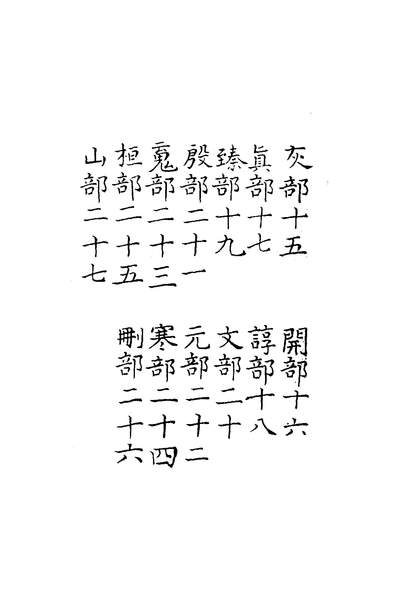 灰部十五 開部十六
眞部十七 諄部十八
臻部十九 文部二十
殷部二十一 元部二十二
䰟部二十三 寒部二十四
桓部二十五 刪部二十六
山部二十七